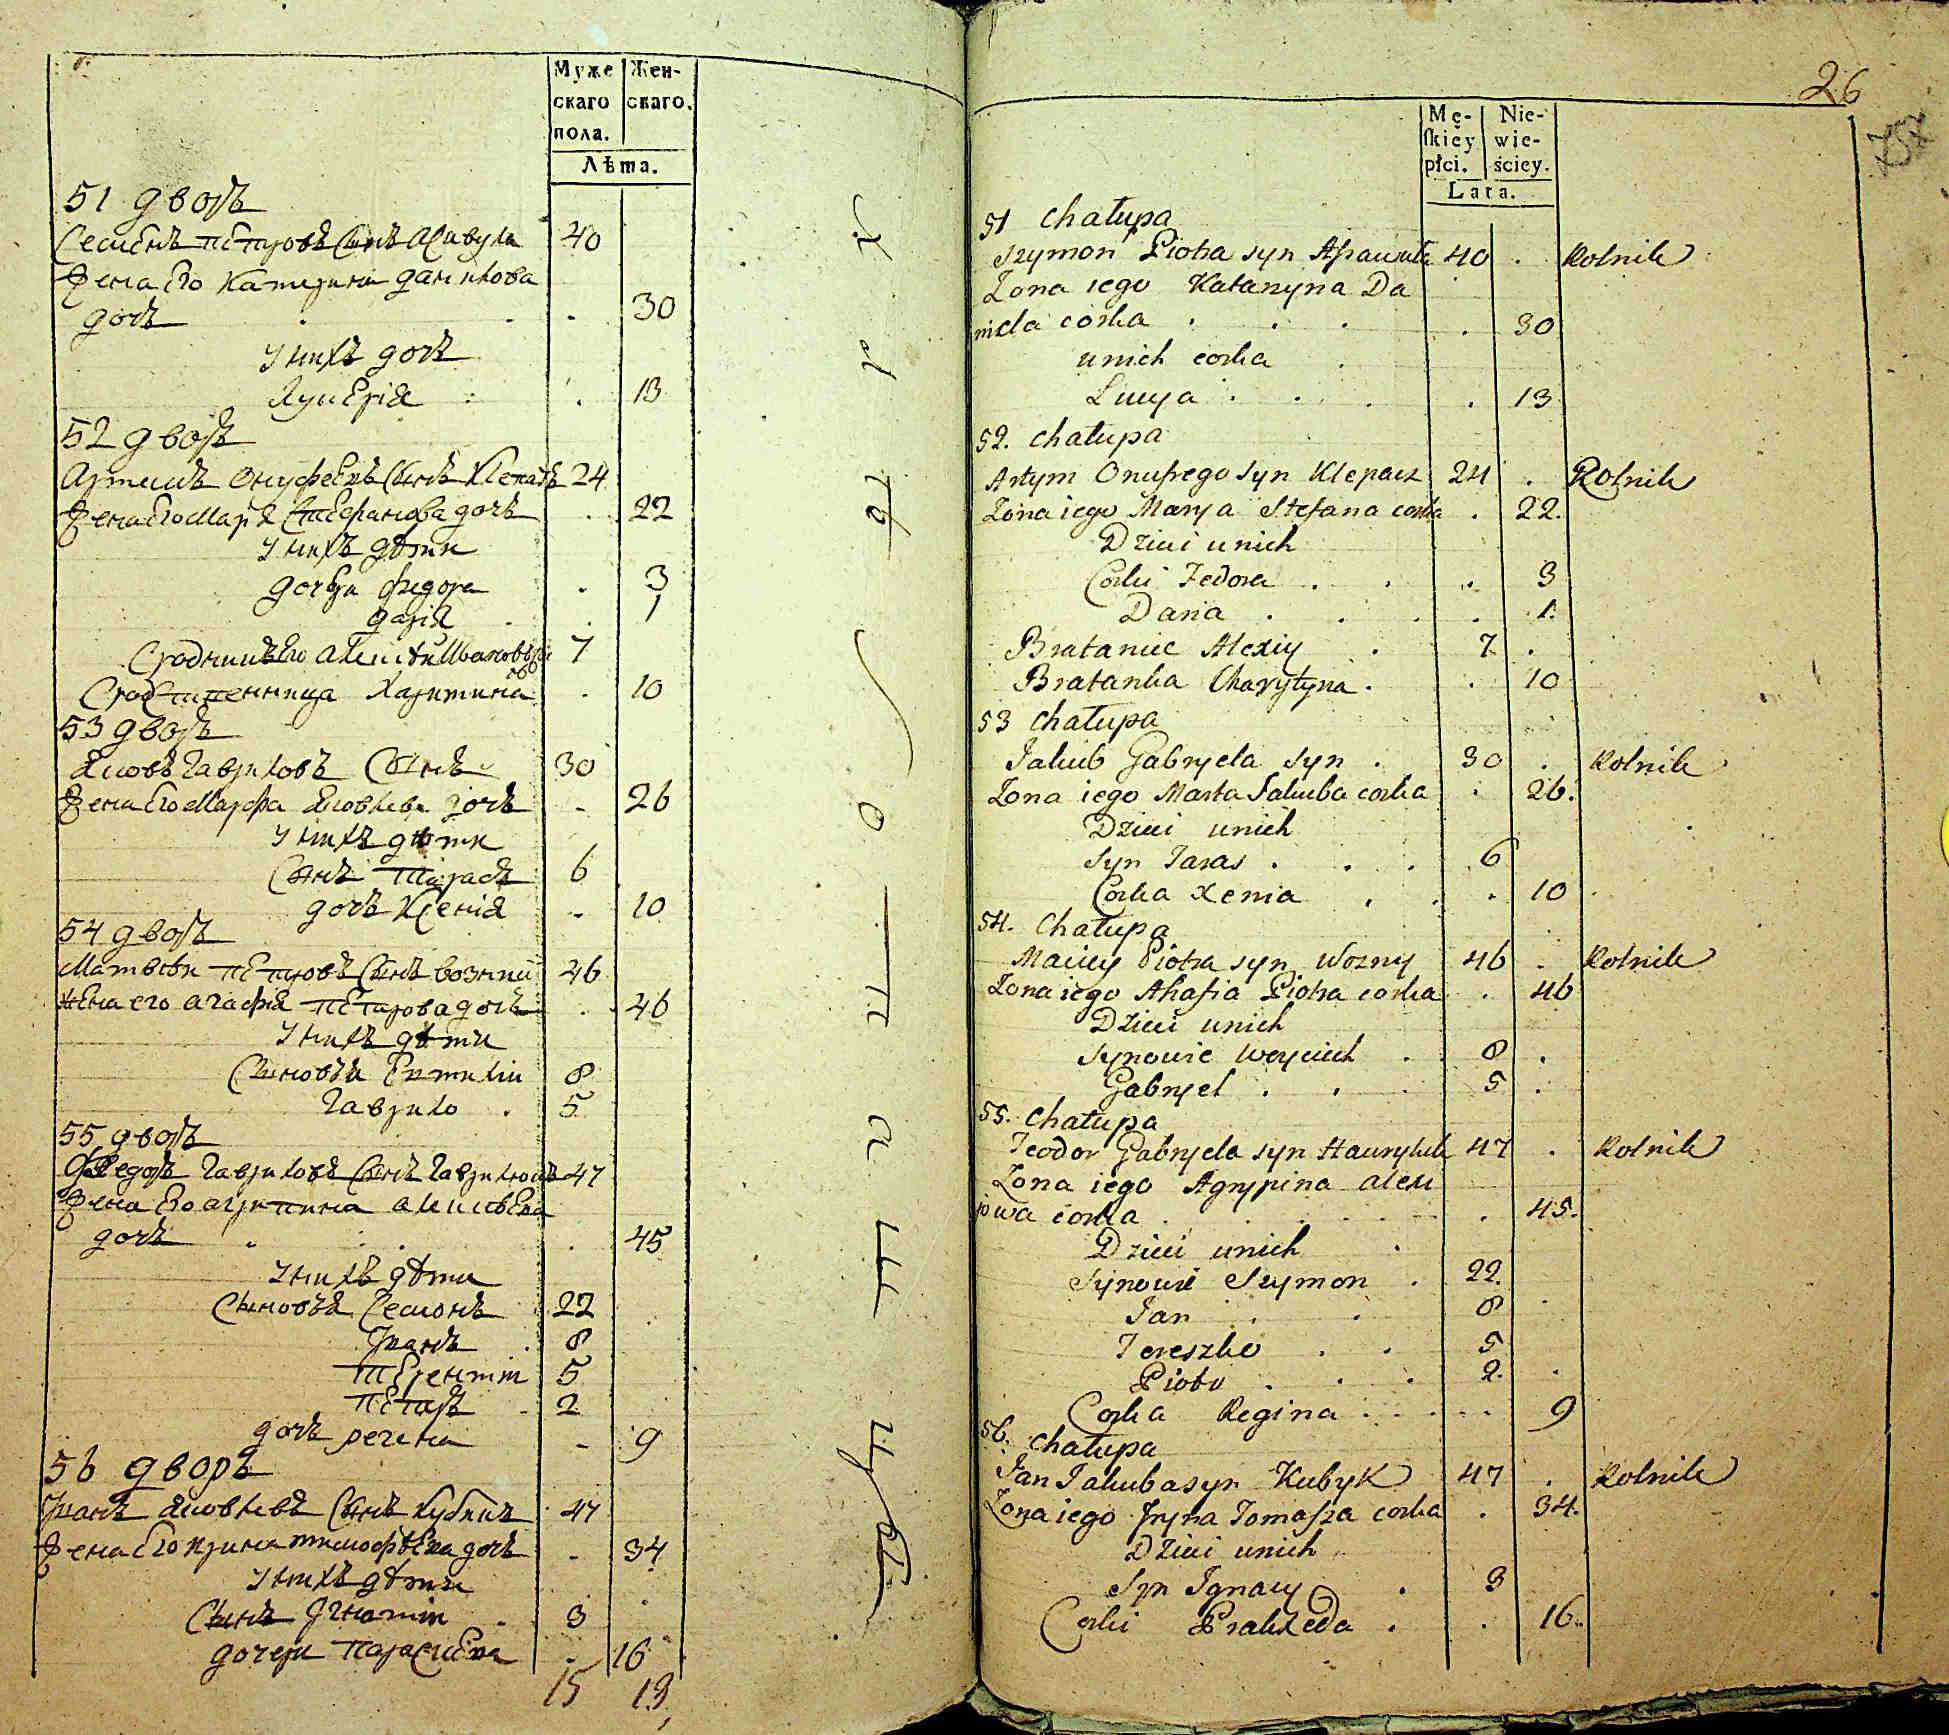 Муже
скаго
пола.
Жен-
скаго.
Лѣта.
51 дворъ
Семенъ Петровъ Сынъ 40
Жена Его Катерина Данилова
дочь 30
У нихъ дочь
Лукерія 13
52 дворъ
Артимъ Онуфреевъ Сынъ Клепачъ 24
Жена Его Марья Стефанова дочь 22
У нихъ дѣти
дочери Федора 3
Дарія 1
Сродникъ Его Алексѣй Ивановъ 7
Сродственница Харитина 10
53 дворъ
Яковъ Гавриловъ Сынъ 30
Жена Его Марфа Яковлева дочь 26
У нихъ дѣти
Сынъ Тарасъ 6
дочь Ксенія 10
54 дворъ
Матвѣй Петровъ Сынъ Возный 46
Жена его Агафія Петрова дочь 46
У нихъ дѣти
Сыновья 8
Гаврило 5
55 дворъ
Федоръ Гавриловъ Сынъ Гаврилюкъ 47
Жена Его Агрипина Алексѣева
дочь 45
У нихъ дѣти
Сыновья Семонъ 22
Иванъ 8
Терентій 5
Петръ 2
дочь Регина 9
56 дворъ
Иванъ Яковлевъ Сынъ Кубикъ 47
Жена Его Ирина Тимофѣева дочь 34
У нихъ дѣти
Сынъ Игнатій 3
дочери 16
15 13
26
Mę-
skiéy
płci.
Nie-
wie-
ściey.
Lata.
51 Chałupa
Szymon Piotra syn 40 Rolnik
Zona iego Katarzyna Da
niela corka 30
u nich corka
Łucya 13
52. Chałupa
Artym Onufrego syn Klepacz 24 Rolnik
Zona iego Marya Stefana corka 22.
Dzieci u nich
Corki Fedora 3
Daria 1.
Bratanic Alexiy 7
Bratanka Charytyna 10
53 Chałupa
Jakub Gabryela syn 30 Rolnik
Zona iego Marta Jakuba corka 26.
Dzieci u nich
Syn Taras 6
Corka Xenia 10
54. Chałupa
Maciey Piotra syn Wozny 46 Rolnik
Zona iego Ahafia Piotra corka 46
Dzieci u nich
Synowie Woyciech 8
Gabryel 5
55. Chałupa
Teodor Gabryela syn Hawryluk 47 Rolnik
Zona iego Agrypina Alexi
iowa corka 45.
Dzieci u nich
Synowie Szymon 22.
Jan 8
Tereszko 5
Piotr 2.
Corka Regina 9
56. Chałupa
Jan Jakuba syn Kubyk 47 Rolnik
Zona iego Iryna Tomasza corka 34.
Dzieci u nich
Syn Ignacy 3
Corki Praxeda 16.